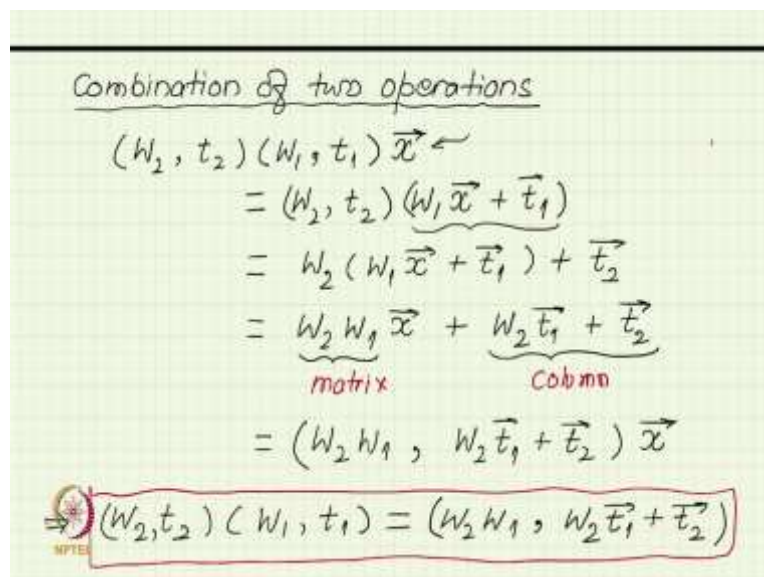 Combination of two operations
(W₂, t₂)(W₁, t₁) x⃗ ←
= (W₂, t₂)(W₁x⃗ + t⃗₁)
= W₂(W₁x⃗ + t⃗₁) + t⃗₂
= W₂W₁x⃗ + W₂t⃗₁ + t⃗₂
matrix column
= (W₂W₁, W₂t⃗₁ + t⃗₂) x⃗
⇒ (W₂,t₂)(W₁, t₁) = (W₂W₁, W₂t⃗₁ + t⃗₂)
NPTEL